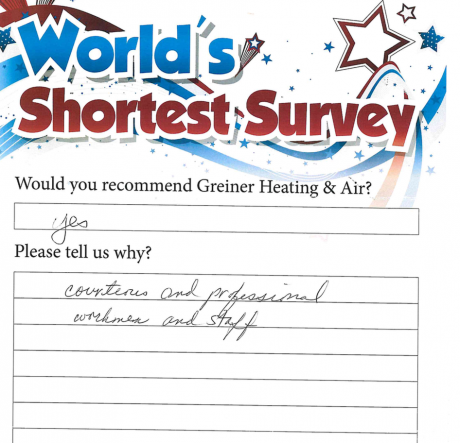 World's
Shortest Survey
Would you recommend Greiner Heating & Air?
yes
Please tell us why?
courteous and professional
workmen and staff